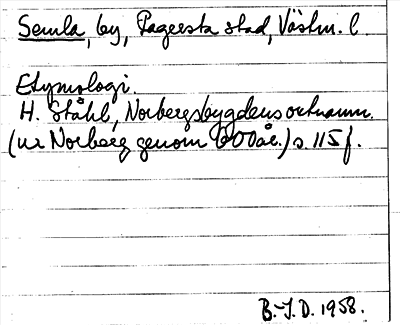 Semla, by, Fagersta stad, Västm. l.
Etymologi.
H. Ståhl, Norbergsbygdens ortnamn.
(ur Norberg genom 600 år.) s. 115 f.
B.-J.D. 1958.